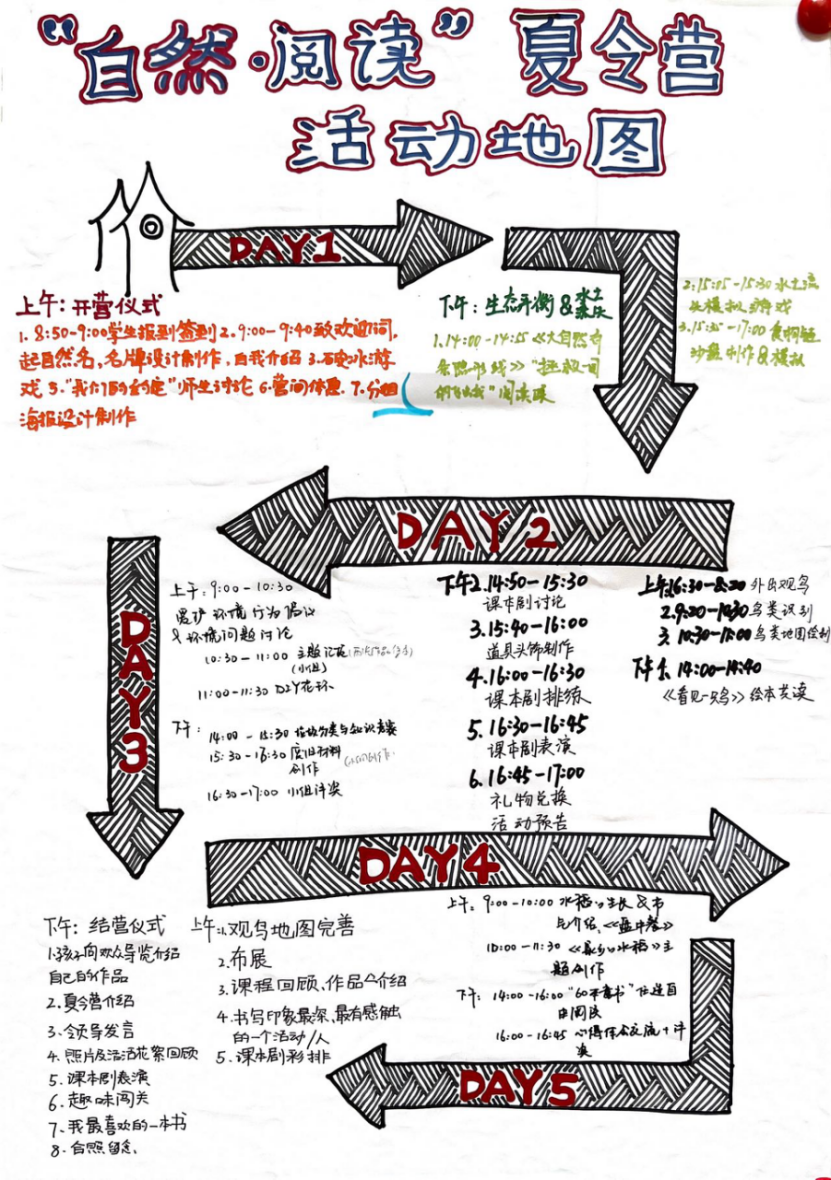 “自然·阅读”夏令营
活动地图
DAY1
上午：开营仪式
1. 8:50-9:00学生报到签到 2. 9:00-9:40致欢迎词,
起自然名,名牌设计制作,自我介绍 3. 破冰游
戏 5.“我们的约定”师生讨论 6.营间休息. 7.分组
海报设计制作
下午：生态平衡&水土
流失
1.14:00-14:55《大自然的
》“拯救
”阅读课
2.15:05-15:30水土流
失模拟游戏
3.15:35-17:00食物链
沙盘制作&模拟
DAY2
上午1.6:30-8:20 外出观鸟
2.9:20-10:30鸟类识别
3. 10:30-11:00 鸟类地图绘制
下午1. 14:00-14:40
《看见一只鸟》绘本共读
下午2.14:50-15:30
课本剧讨论
3.15:40-16:00
道具头饰制作
4.16:00-16:30
课本剧排练
5.16:30-16:45
课本剧表演
6.16:45-17:00
礼物兑换
活动预告
DAY3
上午：9:00-10:30
爱护环境行为倡议
&环境问题讨论
10:30-11:00 主题
(小组)
11:00-11:30 DIY花环
下午：
14:00-15:30 垃圾分类与知识竞赛
15:30-16:30 废旧材料
创作
16:30-17:00 小组评奖
DAY4
上午：9:00-10:00 水稻の生长&书
片介绍,《盗牛卷》
10:00-11:30 《家乡の水稻》主
题创作
下午：14:00-16:00“60本畅书”任选自
由阅读
16:00-16:45 心得体会交流+评
奖
DAY5
上午:1.观鸟地图完善
2.布展
3.课程回顾、作品介绍
4.书写印象最深、最有感触
的一个活动/人
5.课本剧彩排
下午：结营仪式
1.孩子向观众导览介绍
自己的作品
2.夏令营介绍
3.领导发言
4.照片及活动花絮回顾
5.课本剧表演
6.趣味闯关
7.我最喜欢的一本书
8.合照留念.